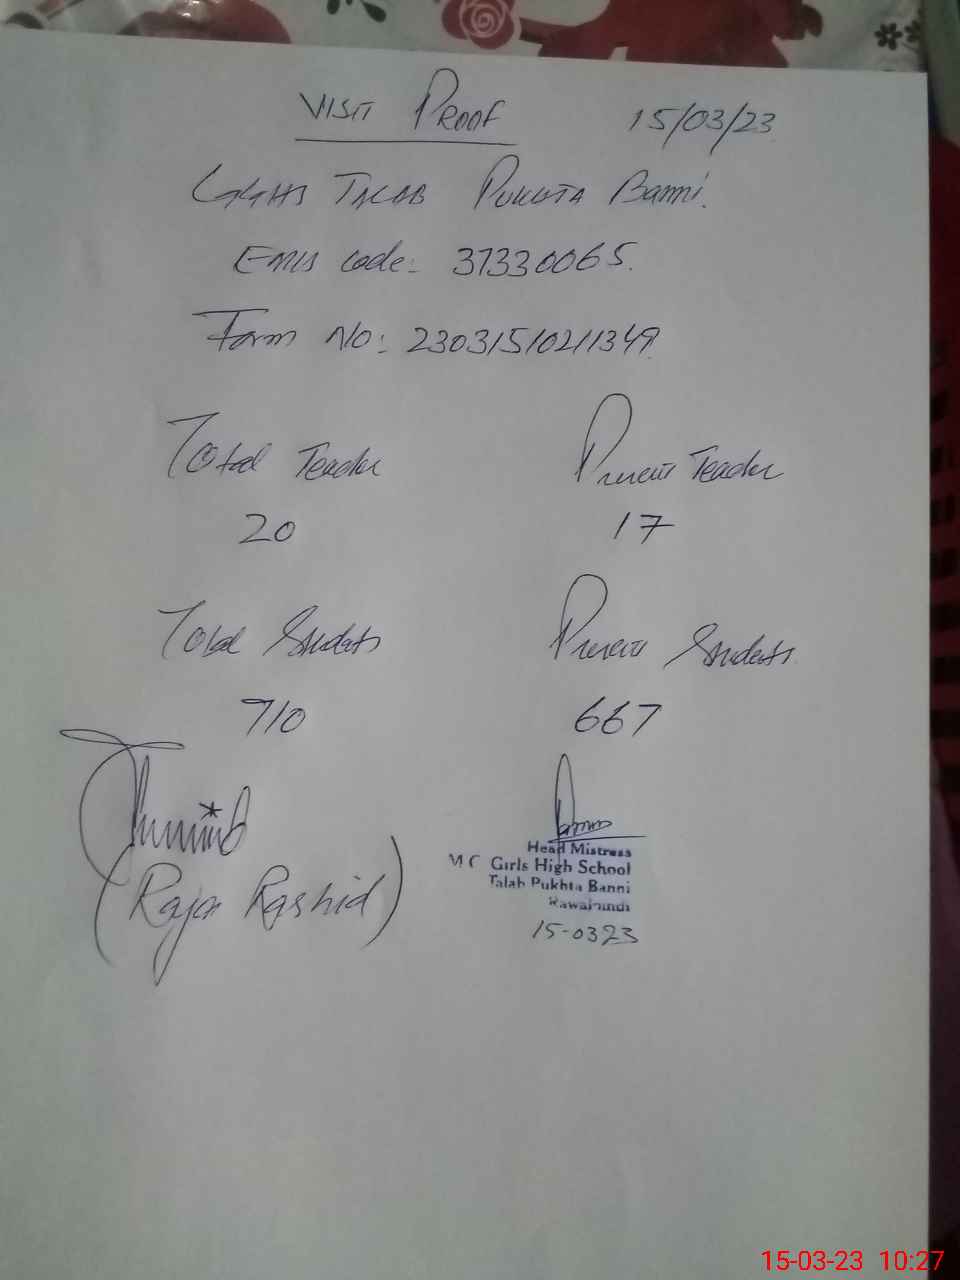 VISIT PROOF 15/03/23
GGHS TALAB PUKHTA Banni.
EMIS code: 37330065.
Form NO: 23031510211349
Total Teacher Present Teacher
20 17
Total Students Present Students
710 667
(Raja Rashid)
Head Mistress
M C Girls High School
Talab Pukhta Banni
Rawalpindi
15-0323
15-03-23 10:27